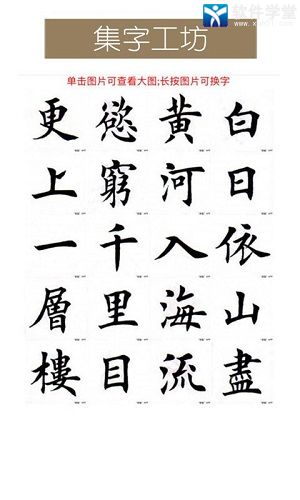 软件学堂
集字工坊
单击图片可查看大图;长按图片可换字
白日依山盡
黄河入海流
慾窮千里目
更上一層樓